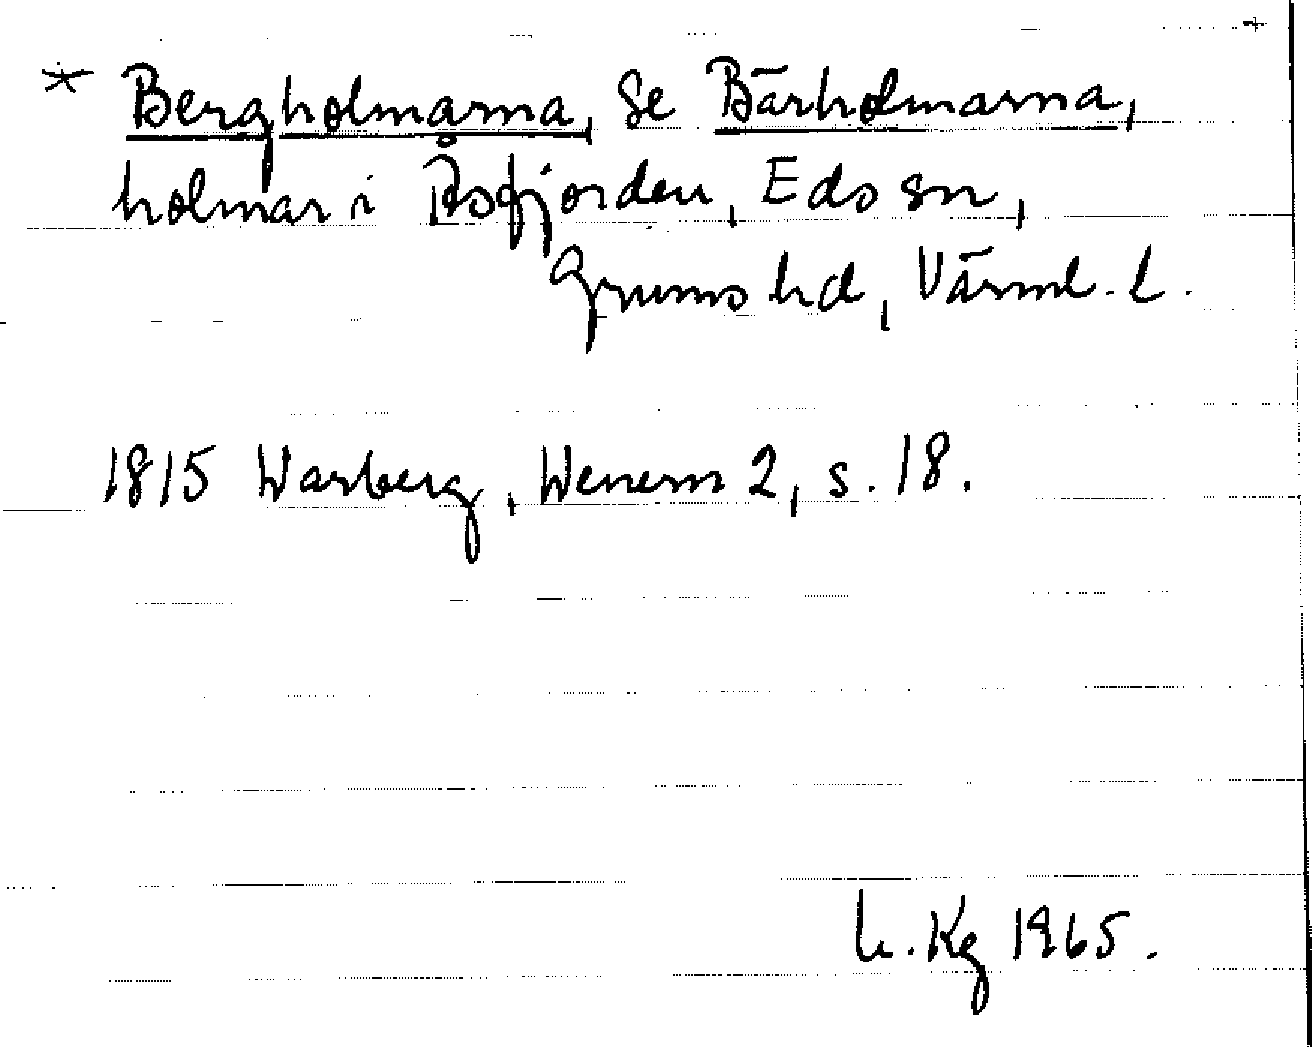 * Bergholmarna, Se Bärholmarna,
holmar i Åsfjorden, Eds sn,
Grums hd, Värml. l.
1815 Warberg, Wenern 2, s. 18.
Kg 1965.